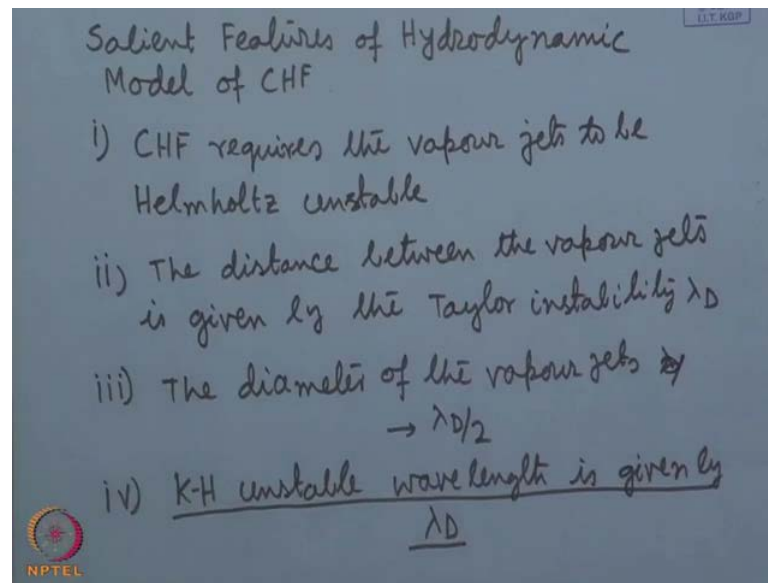 I.I.T. KGP
Salient Features of Hydrodynamic
Model of CHF
i) CHF requires the vapour jets to be
Helmholtz unstable
ii) The distance between the vapour jets
is given by the Taylor instability λD
iii) The diameter of the vapour jets
→ λD/2
iv) K-H unstable wavelength is given by
λD
NPTEL